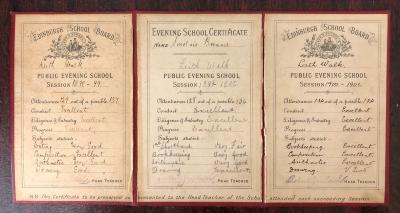 EDINBURGH SCHOOL BOARD
Leith Walk
PUBLIC EVENING SCHOOL
SESSION 1898-99
Attendances 129 out of a possible 137
Conduct Excellent
Diligence & Industry Excellent
Progress Excellent
Subjects studied:-
Writing Very Good
Composition Excellent
Arithmetic Very Good
Drawing Good
HEAD TEACHER
EVENING SCHOOL CERTIFICATE
Leith Walk
PUBLIC EVENING SCHOOL
SESSION 1899-1900
Attendances out of a possible
Conduct Excellent
Diligence & Industry Excellent
Progress Excellent
Subjects studied:-
Shorthand Very Fair
Bookkeeping Very Good
Arithmetic Very Good
Drawing Excellent
HEAD TEACHER
EDINBURGH SCHOOL BOARD
Leith Walk
PUBLIC EVENING SCHOOL
SESSION 1900-1901
Attendances out of a possible
Conduct Excellent
Diligence & Industry Excellent
Progress Excellent
Subjects studied:-
Bookkeeping Excellent
Composition Excellent
Arithmetic Excellent
Drawing V. Good
HEAD TEACHER
N.B. This Certificate to be preserved and presented to the Head Teacher of the School attended each succeeding Session.